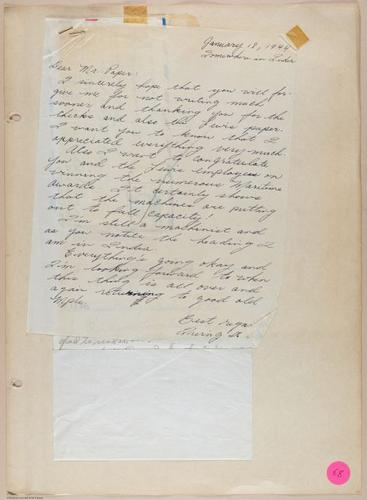 January 18, 1944
Somewhere in India
Dear Mr. Paper:
I sincerely hope that you will for-
give me for not writing much
sooner and thanking you for the
checks and also the Lewis paper.
I want you to know that I
appreciated everything very much.
Also I want to congratulate
you and the Lewis employees on
winning the numerous Maritime
awards. It certainly shows
that the machines are putting
out to full capacity!
I'm still a machinist and
as you notice the heading I
am in India.
Everything's going okay and
I'm looking forward to when
this thing is all over and
again returning to good old
Mpls.
Best rega
68